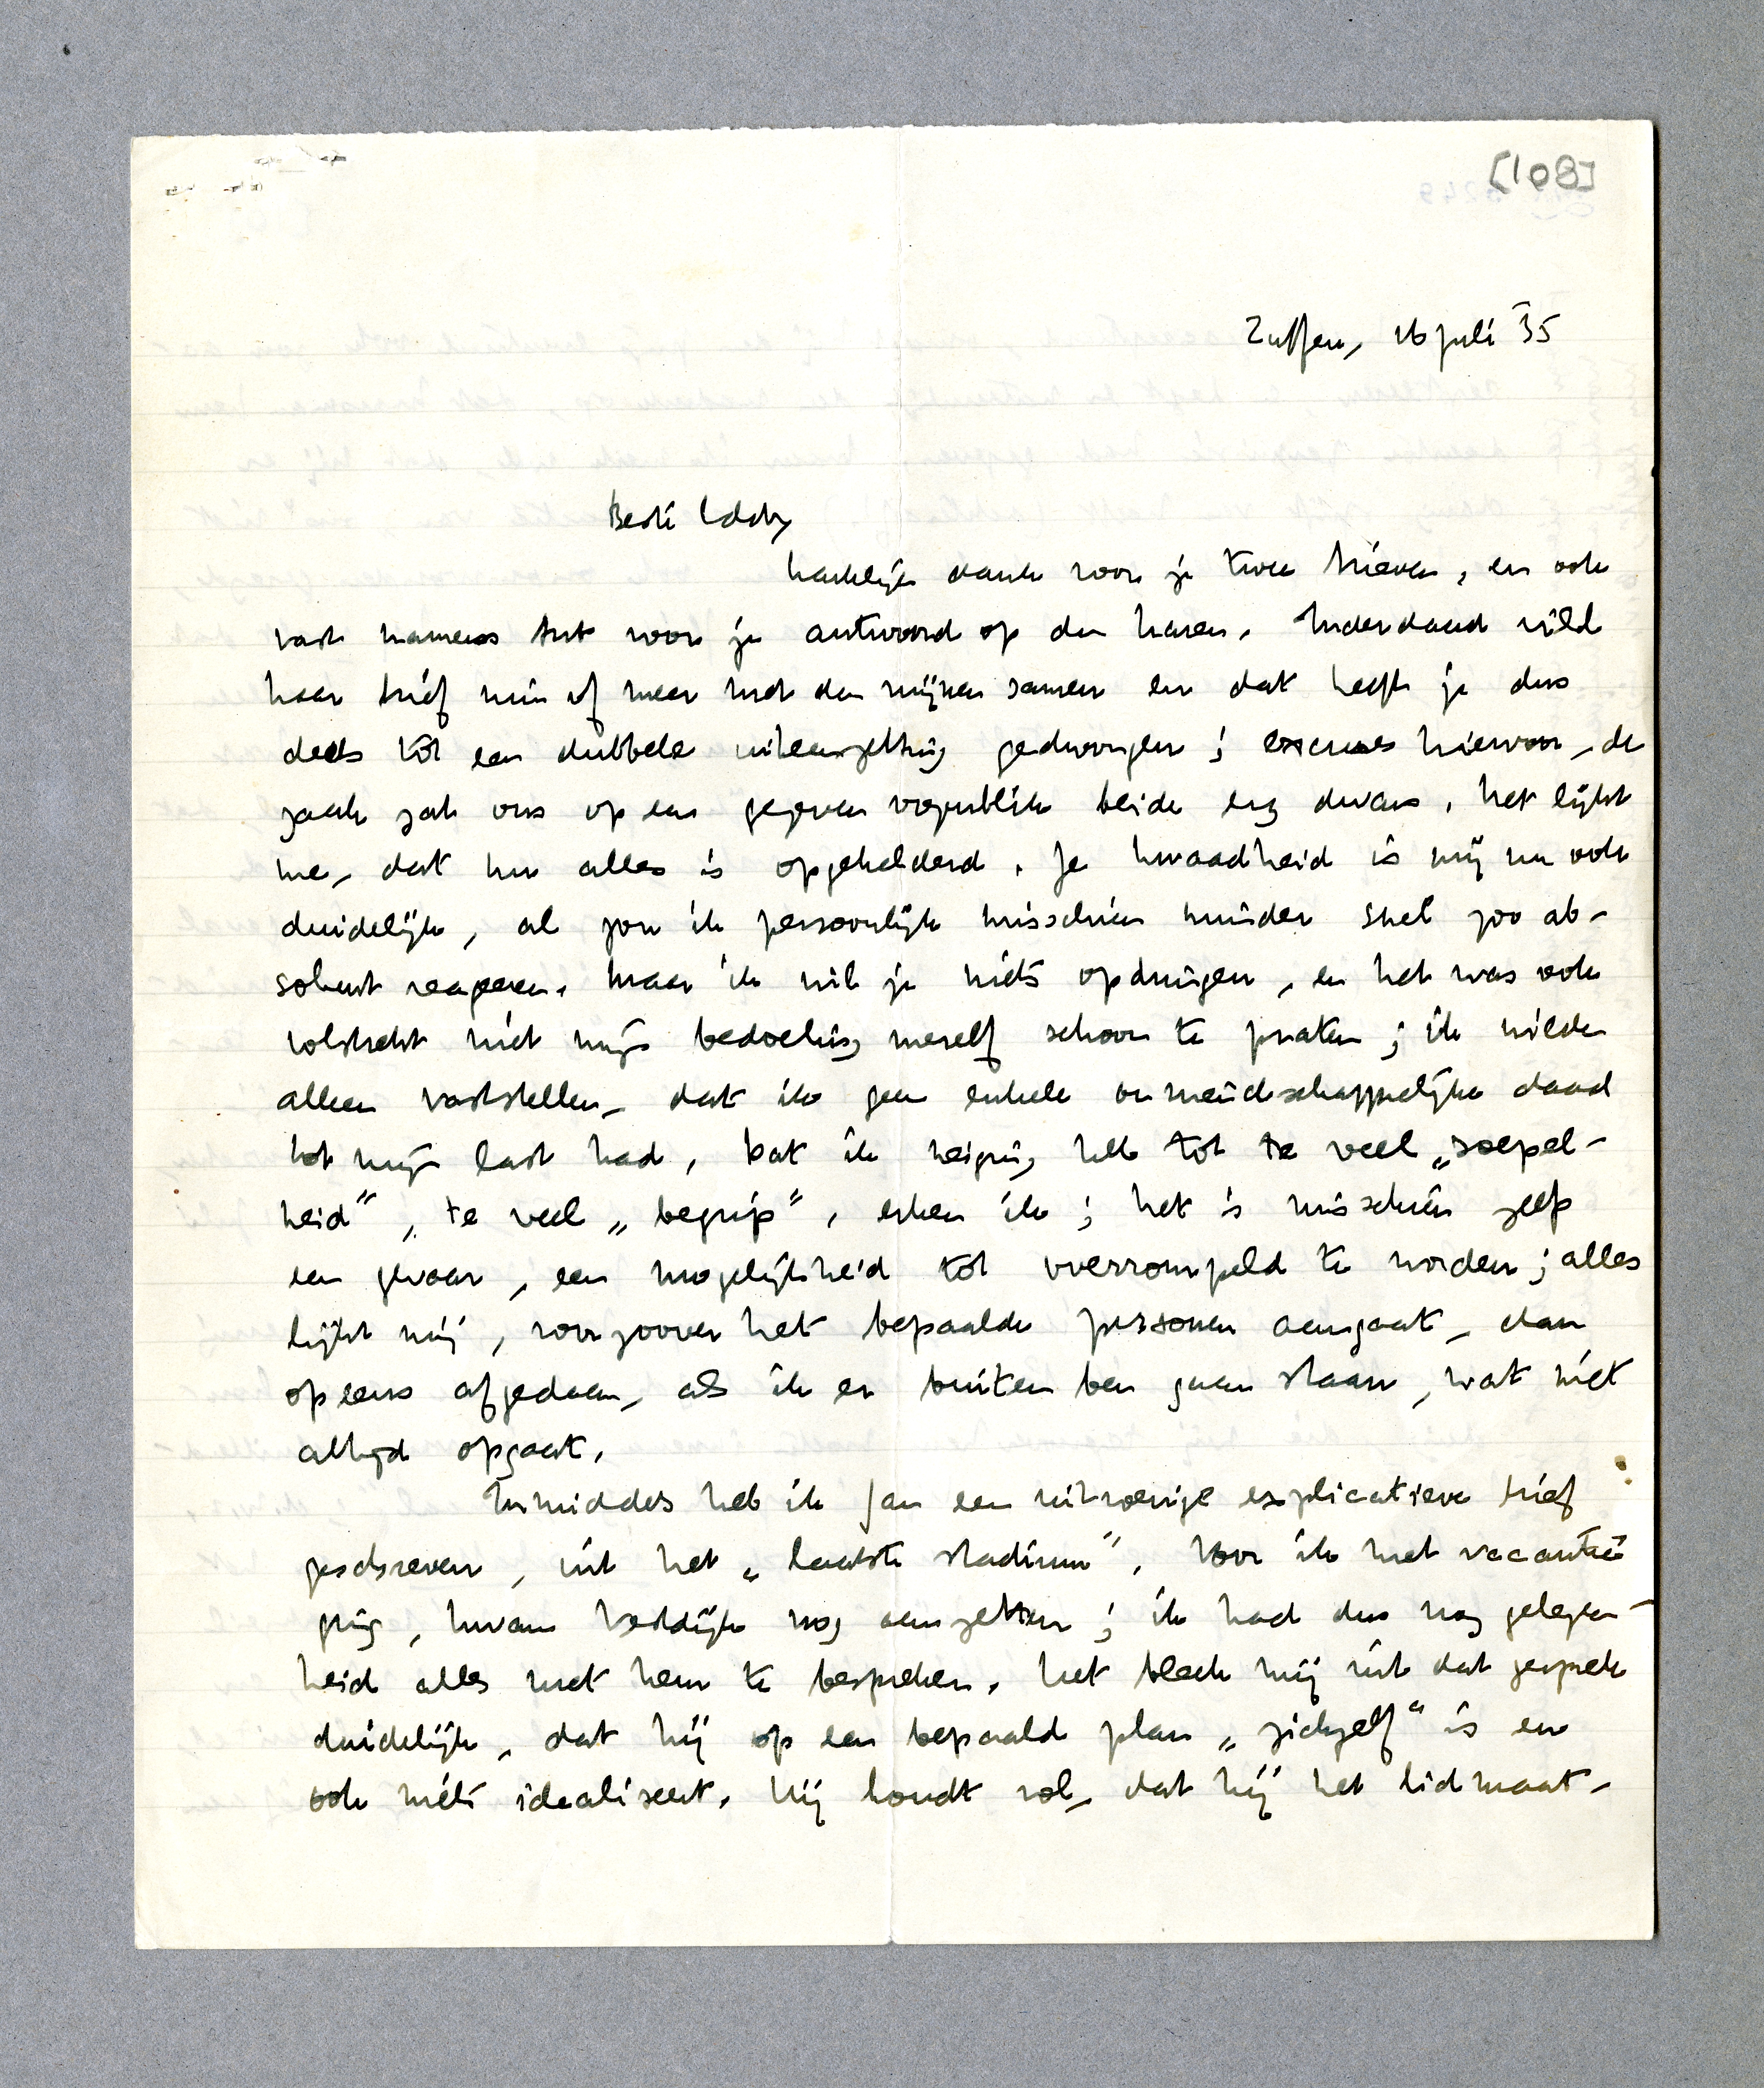 [108]
Zutfen, 16 juli '35
Beste Eddy
hartelijk dank voor je twee brieven, en ook
vast namens Ant voor je antwoord op den haren. Inderdaad viel
haar brief min of meer met den mijnen samen en dat heeft je dus
deels tot een dubbele uiteenzetting gedwongen; excuses hiervoor, de
zaak zat ons op een gegeven oogenblik beide erg dwars. Het lijkt
me, dat nu alles is opgehelderd. Je kwaadheid is mij nu ook
duidelijk, al zou ik persoonlijk misschien minder snel zoo ab-
soluut reageeren. Maar ik wil je niets opdringen, en het was ook
volstrekt niet mijn bedoeling mezelf schoon te praten; ik wilde
alleen vaststellen, dat ik geen enkele onvriendschappelijke daad
tot mijn last had. Dat ik neiging heb tot te veel „soepel-
heid", te veel „begrip", erken ik; het is misschien zelfs
een gevaar, een mogelijkheid tot overrompeld te worden; alles
lijkt mij, voorzoover het bepaalde personen aangaat, dan
opeens afgedaan, als ik er buiten ben gaan staan, wat niet
altijd opgaat.
Inmiddels heb ik Jan een uitvoerige explicatieve brief
geschreven, uit het „laatste stadium". Voor ik met vacantie
ging, kwam Vestdijk nog aanzetten; ik had dus nog gelegen-
heid alles met hem te bespreken. Het bleek mij uit dat gesprek
duidelijk, dat hij op een bepaald plan „zichzelf" is en
ook niets idealiseert. Hij houdt vol, dat hij het lidmaat-